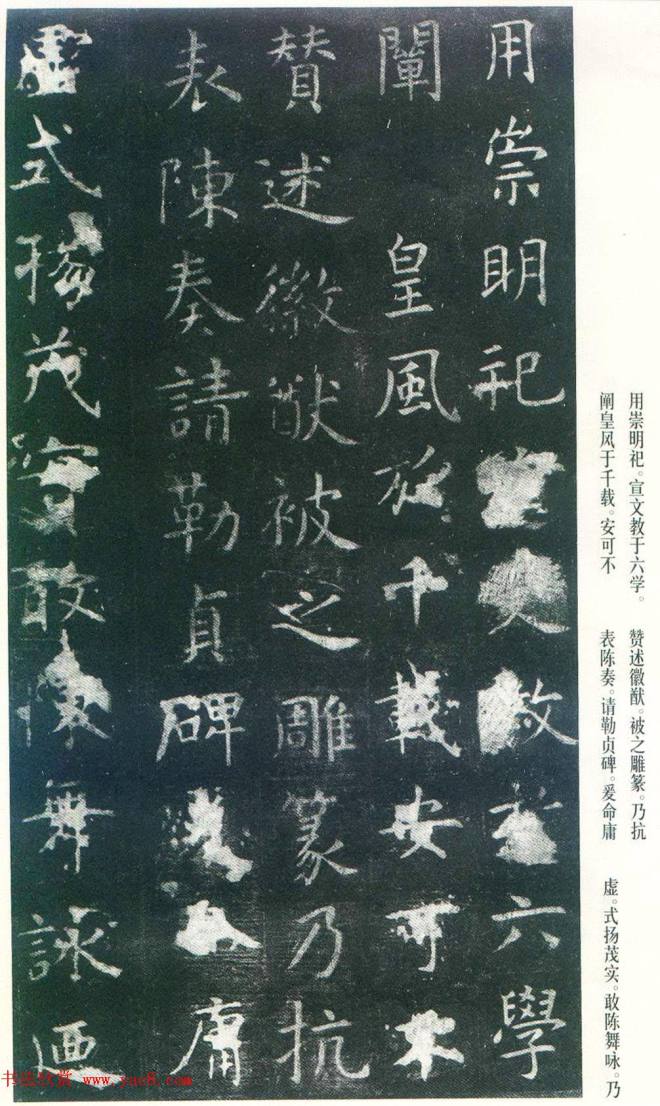 用崇明祀。宣文教于六学。
阐皇风于千载。安可不
赞述徽猷。被之雕篆。乃抗
表陈奏。请勒贞碑。爰命庸
虚。式扬茂实。敢陈舞咏。乃
用崇明祀宣文教於六學
闡 皇風於千載安可不
贊述徽猷被之雕篆乃抗
表陳奏請勒貞碑爰命庸
虛式揚茂實敢陳舞詠迺
书法欣赏 www.yac8.com